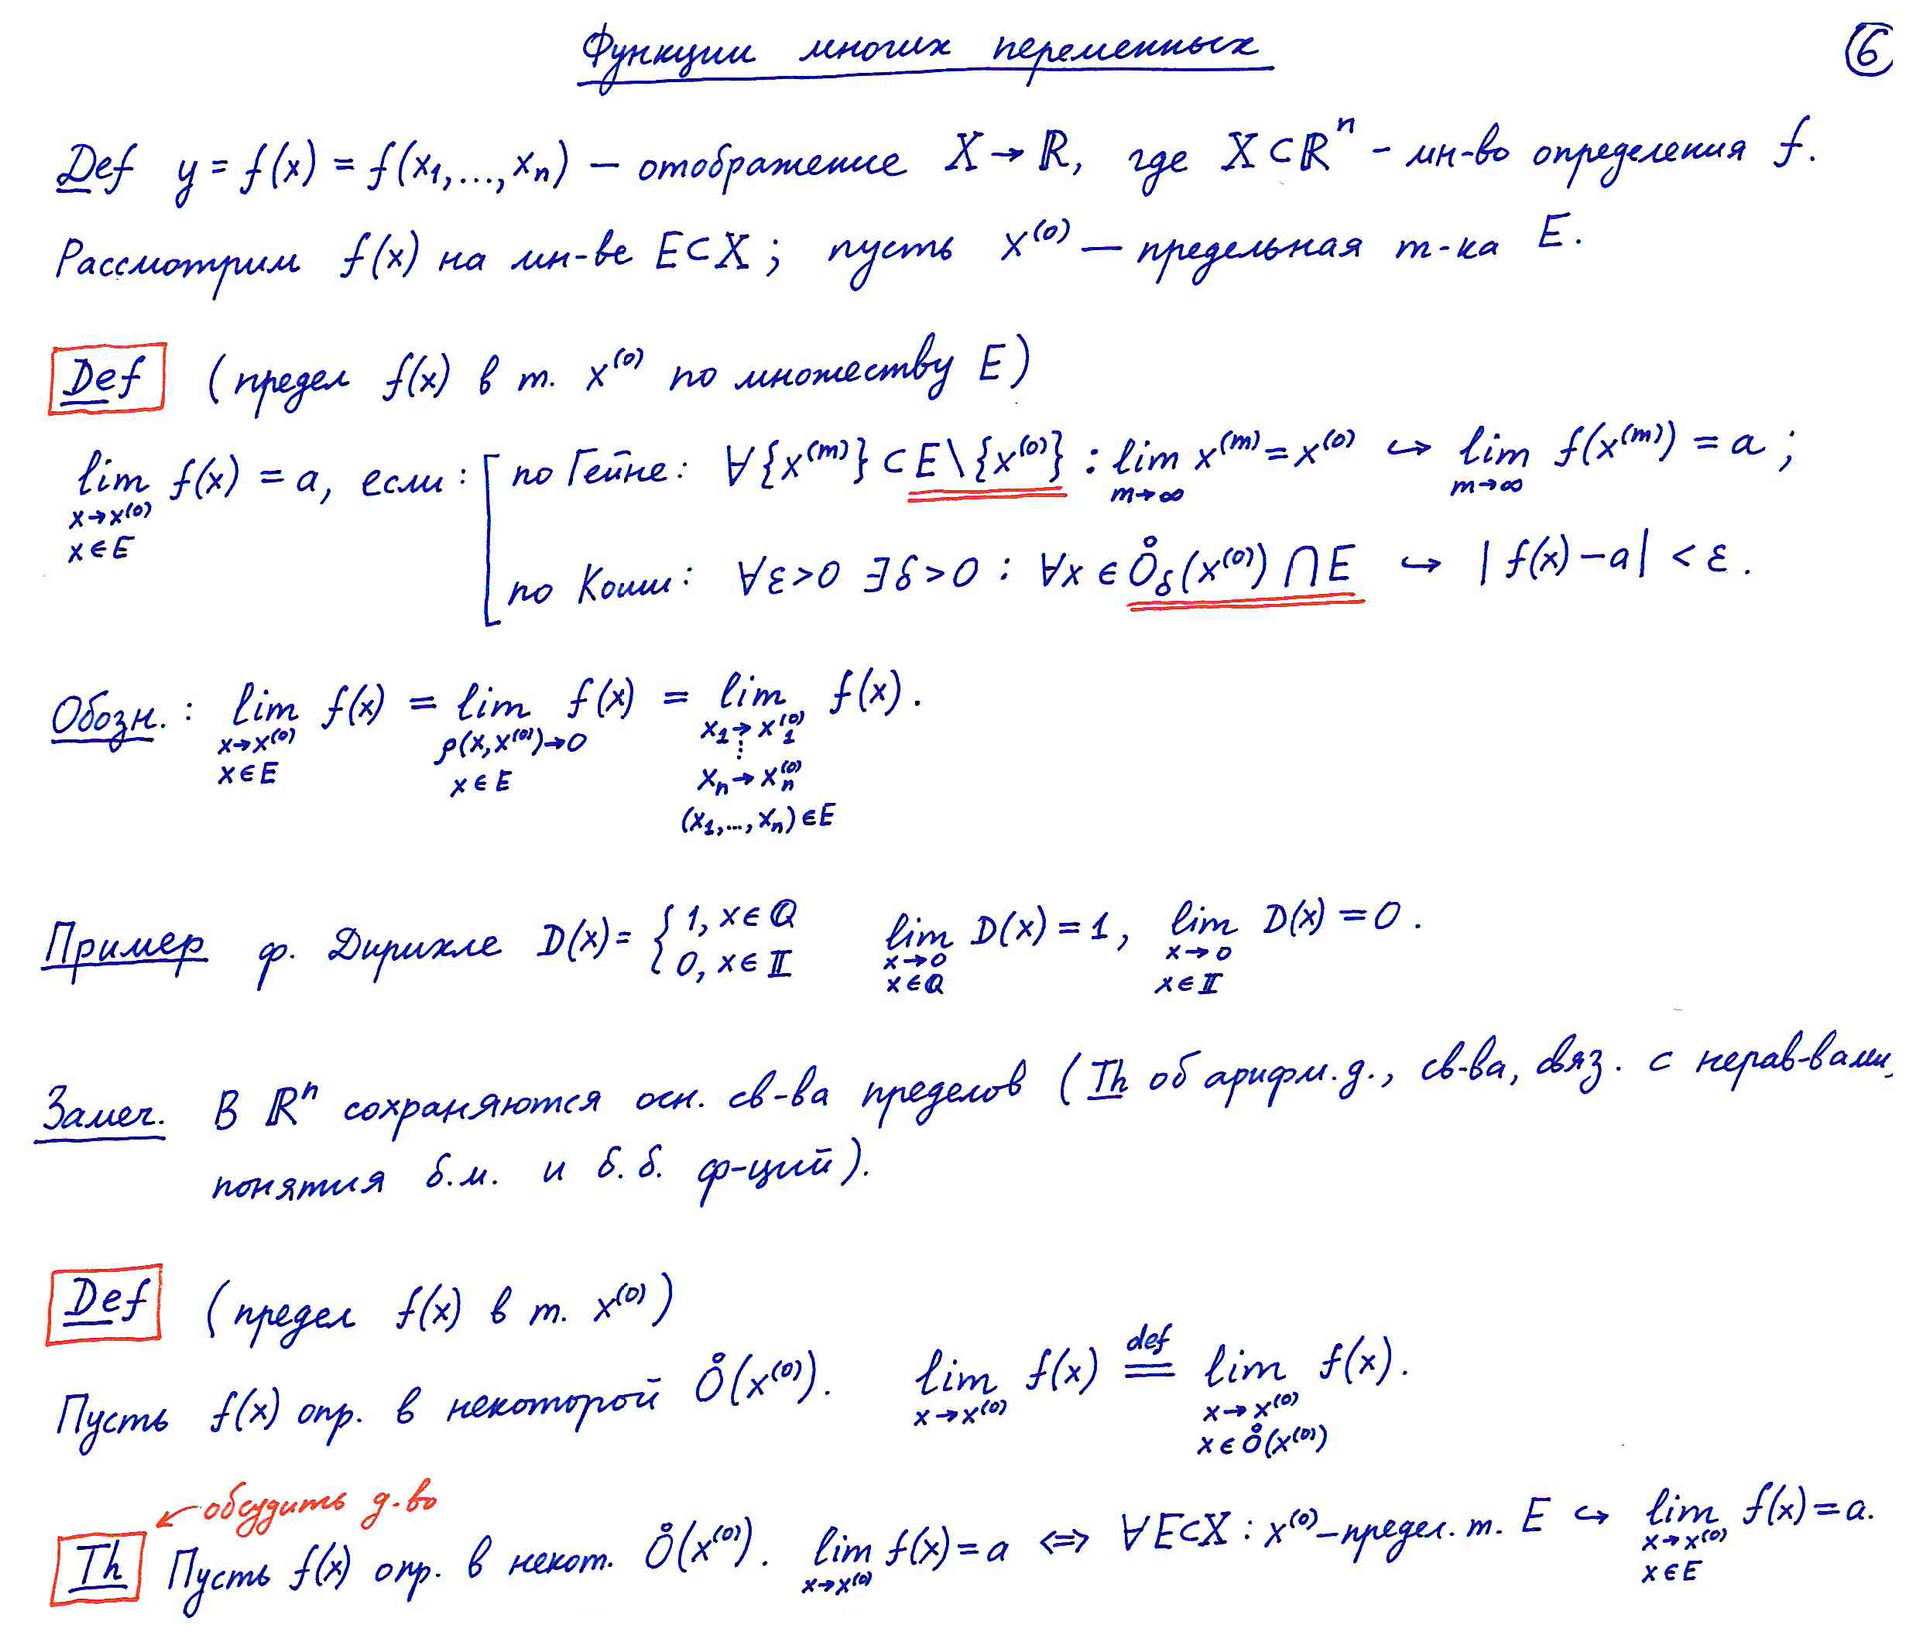 Функции многих переменных
⑥
Def y = f(x) = f(x₁,...,xₙ) — отображение X → ℝ, где X ⊂ ℝⁿ - мн-во определения f.
Рассмотрим f(x) на мн-ве E ⊂ X ; пусть x⁽⁰⁾ — предельная т-ка E.
Def (предел f(x) в т. x⁽⁰⁾ по множеству E)
lim f(x) = a, если : [ по Гейне: ∀{x⁽ᵐ⁾} ⊂ E \ {x⁽⁰⁾} : lim x⁽ᵐ⁾ = x⁽⁰⁾ ↪ lim f(x⁽ᵐ⁾) = a ;
x→x⁽⁰⁾ m→∞ m→∞
x∈E
по Коши: ∀ε>0 ∃δ>0 : ∀x ∈ O̊_δ(x⁽⁰⁾) ∩ E ↪ |f(x) − a| < ε.
Обозн.: lim f(x) = lim f(x) = lim f(x).
x→x⁽⁰⁾ ρ(x,x⁽⁰⁾)→0 x₁→x₁⁽⁰⁾
x∈E x∈E ⋮
xₙ→xₙ⁽⁰⁾
(x₁,...,xₙ)∈E
Пример ф. Дирихле D(x) = { 1, x∈ℚ lim D(x) = 1, lim D(x) = 0.
0, x∈𝕀 x→0 x→0
x∈ℚ x∈𝕀
Замеч. В ℝⁿ сохраняются осн. св-ва пределов (Th об арифм. д., св-ва, связ. с нерав-вами,
понятия б.м. и б.б. ф-ций).
Def (предел f(x) в т. x⁽⁰⁾)
Пусть f(x) опр. в некоторой O̊(x⁽⁰⁾). lim f(x) def= lim f(x).
x→x⁽⁰⁾ x→x⁽⁰⁾
x∈O̊(x⁽⁰⁾)
← обсудить д-во
Th Пусть f(x) опр. в некот. O̊(x⁽⁰⁾). lim f(x) = a ⇔ ∀E⊂X : x⁽⁰⁾ – предел. т. E ↪ lim f(x) = a.
x→x⁽⁰⁾ x→x⁽⁰⁾
x∈E